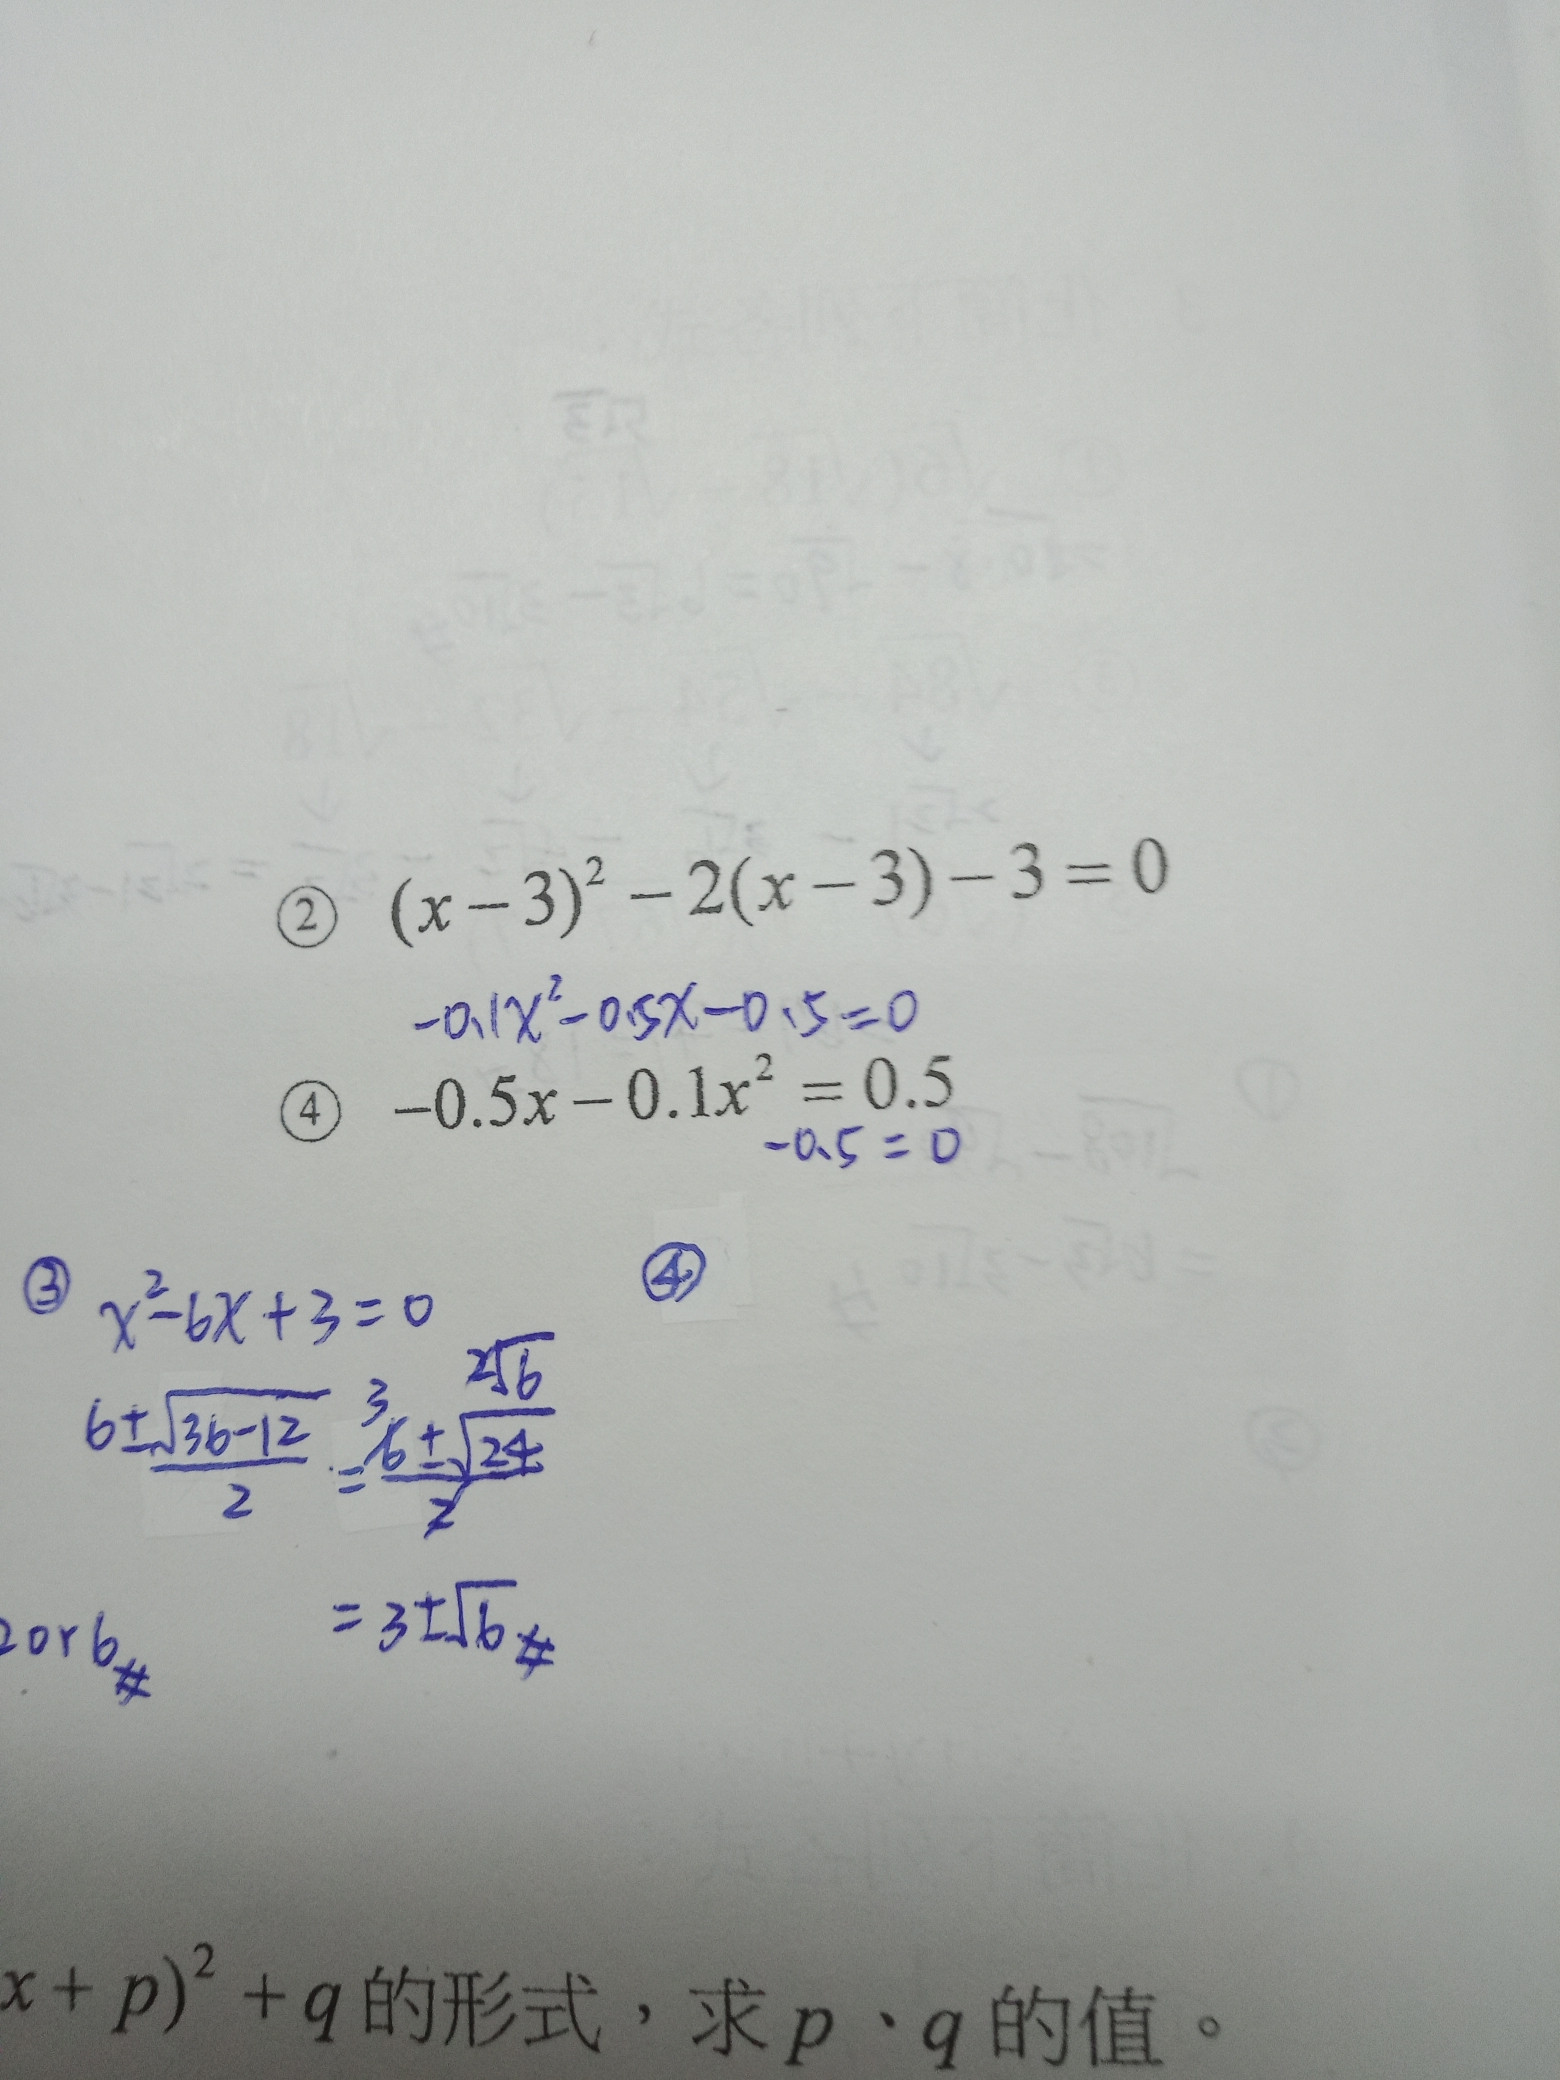 ② (x-3)² - 2(x-3) - 3 = 0
-0.1x² - 0.5x - 0.5 = 0
④ -0.5x - 0.1x² = 0.5
-0.5 = 0
③ x² - 6x + 3 = 0
④
2√6
6±√36-12 / 2 = 3 6±√24 / 2
= 3±√6 #
2or6 #
x + p)² + q 的形式，求 p、q 的值。